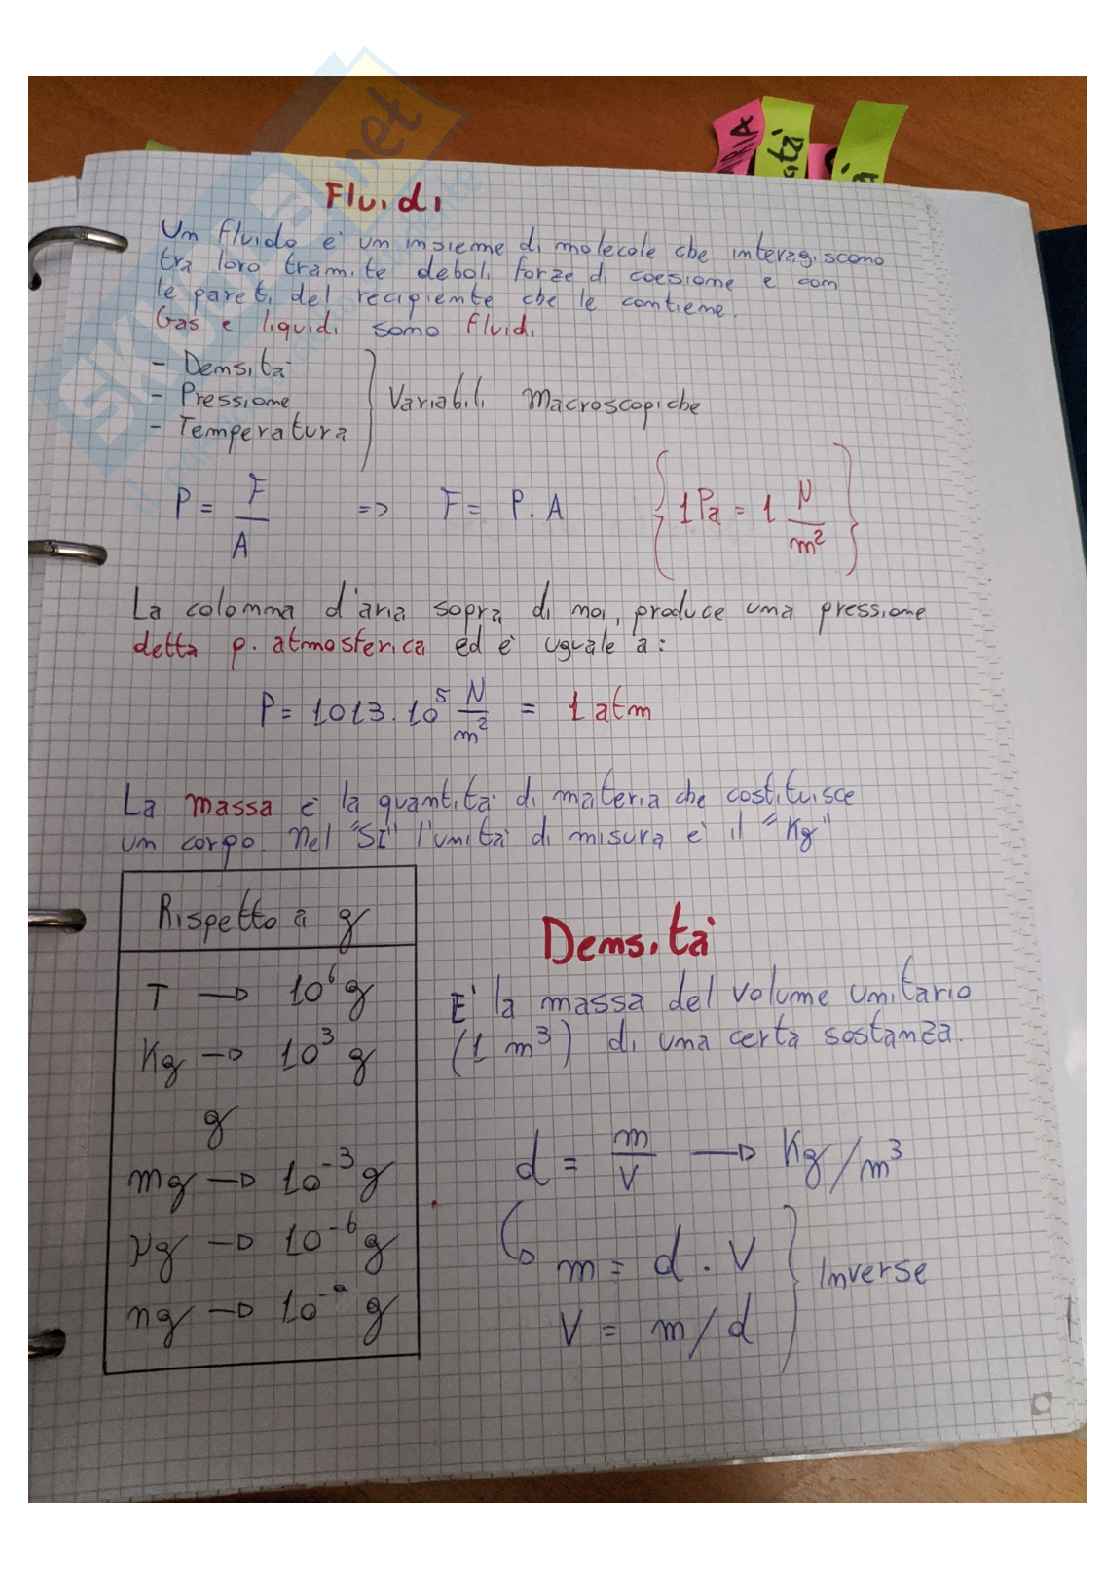 Fluidi
Un fluido è un insieme di molecole che interagiscono
tra loro tramite deboli forze di coesione e con
le pareti del recipiente che le contiene.
Gas e liquidi sono fluidi
- Densità
- Pressione
- Temperatura
Variabili Macroscopiche
P = F/A => F = P . A {1Pa = 1 N/m²}
La colonna d'aria sopra di noi, produce una pressione
detta p. atmosferica ed è uguale a:
P = 1013 . 10⁵ N/m² = 1 atm
La massa è la quantità di materia che costituisce
un corpo. Nel "SI" l'unità di misura è il "Kg"
Rispetto a g
T → 10⁶ g
Kg → 10³ g
g
mg → 10⁻³ g
μg → 10⁻⁶ g
ng → 10⁻⁹ g
Densità
E' la massa del volume unitario
(1 m³) di una certa sostanza.
d = m/V → Kg/m³
m = d . V
V = m/d
Inverse